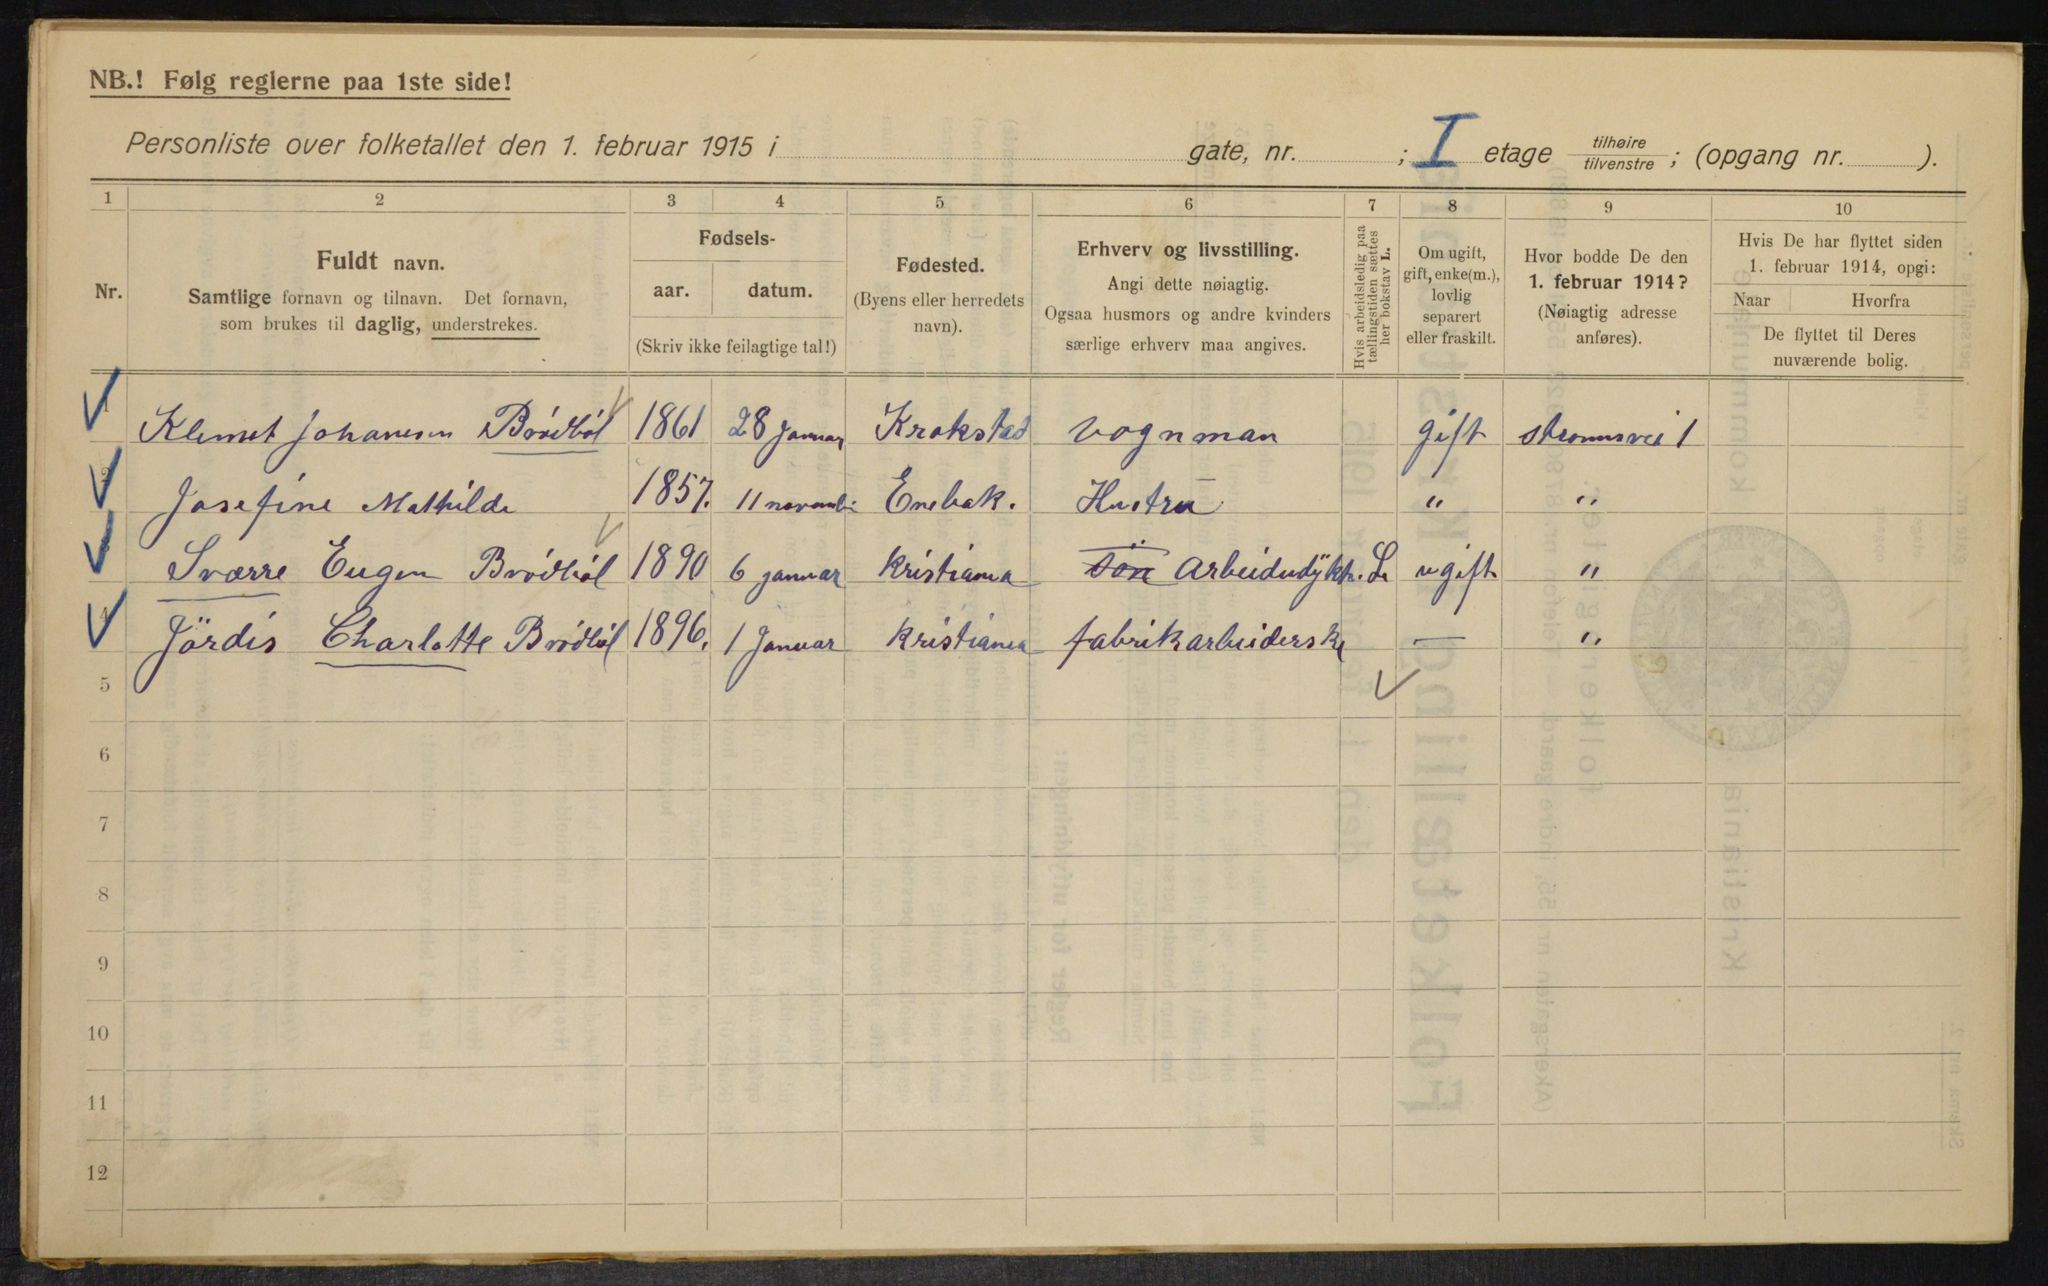 NB.! Følg reglerne paa 1ste side!
Personliste over folketallet den 1. februar 1915 i gate, nr. ; I etage tilhøire tilvenstre ; (opgang nr. ).
1 2 3 4 5 6 7 8 9 10
Nr.
Fuldt navn.
Samtlige fornavn og tilnavn. Det fornavn,
som brukes til daglig, understrekes.
Fødsels-
aar. datum.
(Skriv ikke feilagtige tal!)
Fødested.
(Byens eller herredets
navn).
Erhverv og livsstilling.
Angi dette nøiagtig.
Ogsaa husmors og andre kvinders
særlige erhverv maa angives.
Hvis arbeidsledig paa
tællingstiden sættes
her bokstav L.
Om ugift,
gift, enke(m.),
lovlig
separert
eller fraskilt.
Hvor bodde De den
1. februar 1914?
(Nøiagtig adresse
anføres).
Hvis De har flyttet siden
1. februar 1914, opgi:
Naar Hvorfra
De flyttet til Deres
nuværende bolig.
1 Klemet Johanesen Brödböl 1861 28 Januar Krokstad vognman gift strømsvei 1
2 Josefine Mathilde 1857. 11 novembr Enebak. Hustru " "
3 Sværre Eugen Brödböl 1890 6 januar Kristiania sön L ugift "
4 Jördis Charlotte Brödböl 1896. 1 Januar Kristiania fabrikarbeiderske — "
5
6
7
8
9
10
11
12